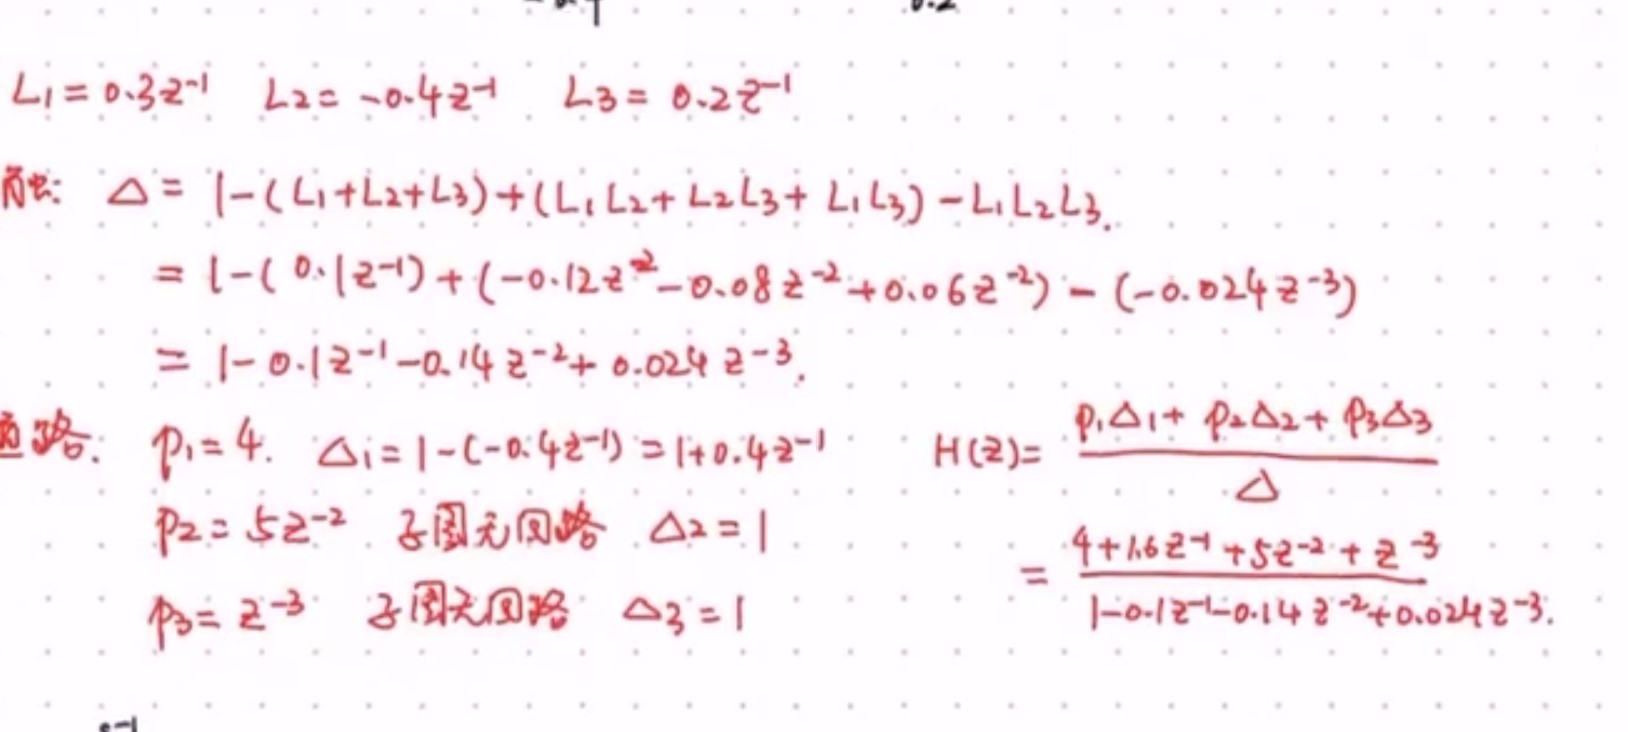 L₁ = 0.3z⁻¹ L₂ = -0.4z⁻¹ L₃ = 0.2z⁻¹
Δ = 1-(L₁+L₂+L₃)+(L₁L₂+L₂L₃+L₁L₃)-L₁L₂L₃.
= 1-(0.1z⁻¹)+(-0.12z⁻²-0.08z⁻²+0.06z⁻²)-(-0.024z⁻³)
= 1-0.1z⁻¹-0.14z⁻²+0.024z⁻³.
通路: p₁=4. Δ₁=1-(-0.4z⁻¹)=1+0.4z⁻¹
p₂=5z⁻² 子图无回路 Δ₂=1
p₃=z⁻³ 子图无回路 Δ₃=1
H(z)= (p₁Δ₁+p₂Δ₂+p₃Δ₃)/Δ
= (4+1.6z⁻¹+5z⁻²+z⁻³)/(1-0.1z⁻¹-0.14z⁻²+0.024z⁻³).